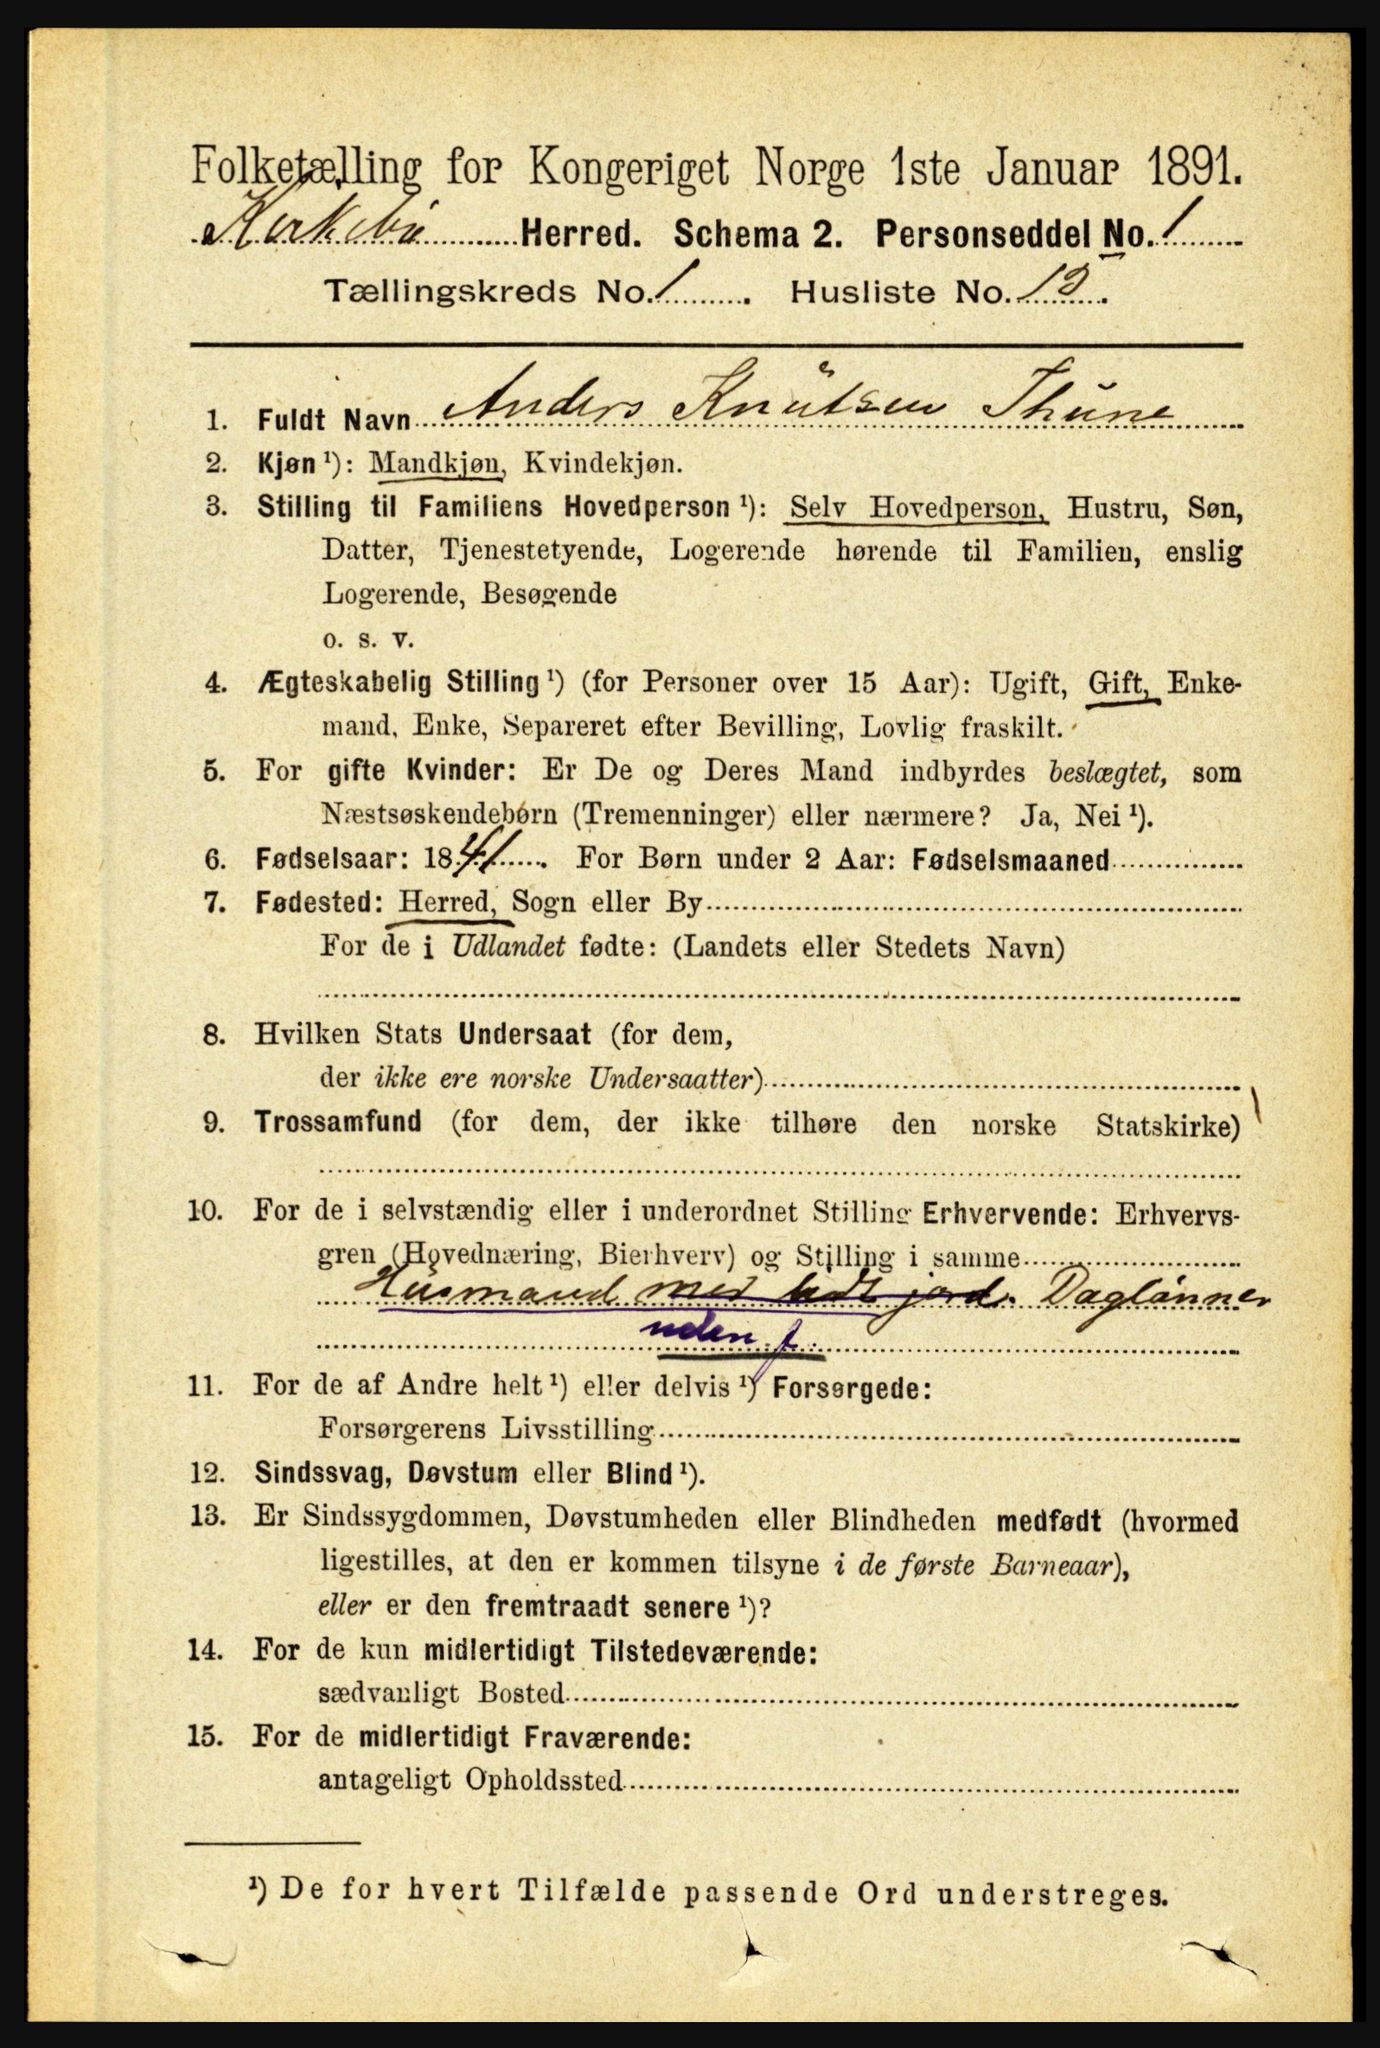 Folketælling for Kongeriget Norge 1ste Januar 1891.
Kirkebø Herred. Schema 2. Personseddel No. 1
Tællingskreds No. 1 . Husliste No. 13 .
1. Fuldt Navn Anders Knutsen Thune
2. Kjøn ¹): Mandkjøn, Kvindekjøn.
3. Stilling til Familiens Hovedperson ¹): Selv Hovedperson, Hustru, Søn,
Datter, Tjenestetyende, Logerende hørende til Familien, enslig
Logerende, Besøgende
o. s. v.
4. Ægteskabelig Stilling ¹) (for Personer over 15 Aar): Ugift, Gift, Enke-
mand, Enke, Separeret efter Bevilling, Lovlig fraskilt.
5. For gifte Kvinder: Er De og Deres Mand indbyrdes beslægtet, som
Næstsøskendebørn (Tremenninger) eller nærmere? Ja, Nei ¹).
6. Fødselsaar: 1841 . For Børn under 2 Aar: Fødselsmaaned
7. Fødested: Herred, Sogn eller By
For de i Udlandet fødte: (Landets eller Stedets Navn)
8. Hvilken Stats Undersaat (for dem,
der ikke ere norske Undersaatter)
9. Trossamfund (for dem, der ikke tilhøre den norske Statskirke)
10. For de i selvstændig eller i underordnet Stilling Erhvervende: Erhvervs-
gren (Hovednæring, Bierhverv) og Stilling i samme
Husmand med lidt jord. Daglønner
uden j.
11. For de af Andre helt ¹) eller delvis ¹) Forsørgede:
Forsørgerens Livsstilling
12. Sindssvag, Døvstum eller Blind ¹).
13. Er Sindssygdommen, Døvstumheden eller Blindheden medfødt (hvormed
ligestilles, at den er kommen tilsyne i de første Barneaar),
eller er den fremtraadt senere ¹)?
14. For de kun midlertidigt Tilstedeværende:
sædvanligt Bosted
15. For de midlertidigt Fraværende:
antageligt Opholdssted
¹) De for hvert Tilfælde passende Ord understreges.